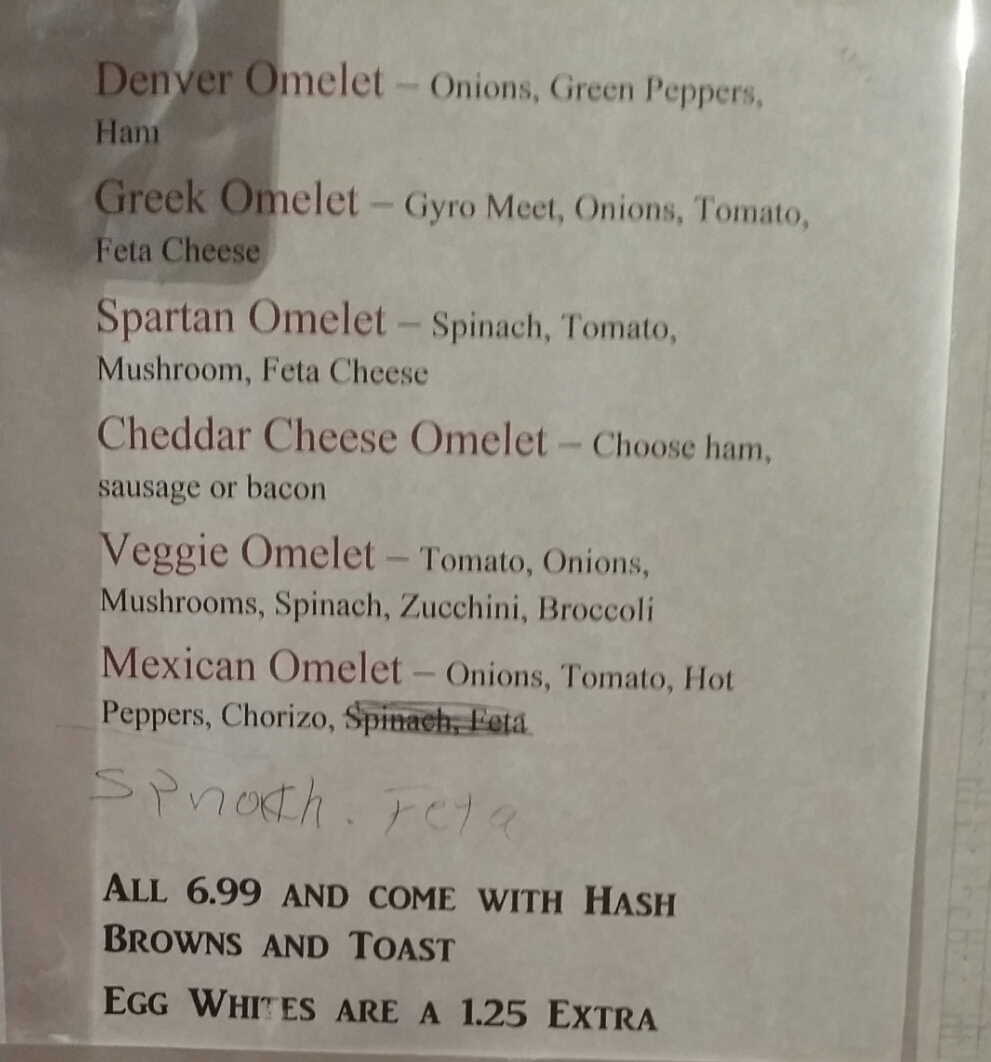 Denver Omelet – Onions, Green Peppers,
Ham
Greek Omelet – Gyro Meet, Onions, Tomato,
Feta Cheese
Spartan Omelet – Spinach, Tomato,
Mushroom, Feta Cheese
Cheddar Cheese Omelet – Choose ham,
sausage or bacon
Veggie Omelet – Tomato, Onions,
Mushrooms, Spinach, Zucchini, Broccoli
Mexican Omelet – Onions, Tomato, Hot
Peppers, Chorizo, Spinach, Feta
Spnach. Feta
ALL 6.99 AND COME WITH HASH
BROWNS AND TOAST
EGG WHITES ARE A 1.25 EXTRA